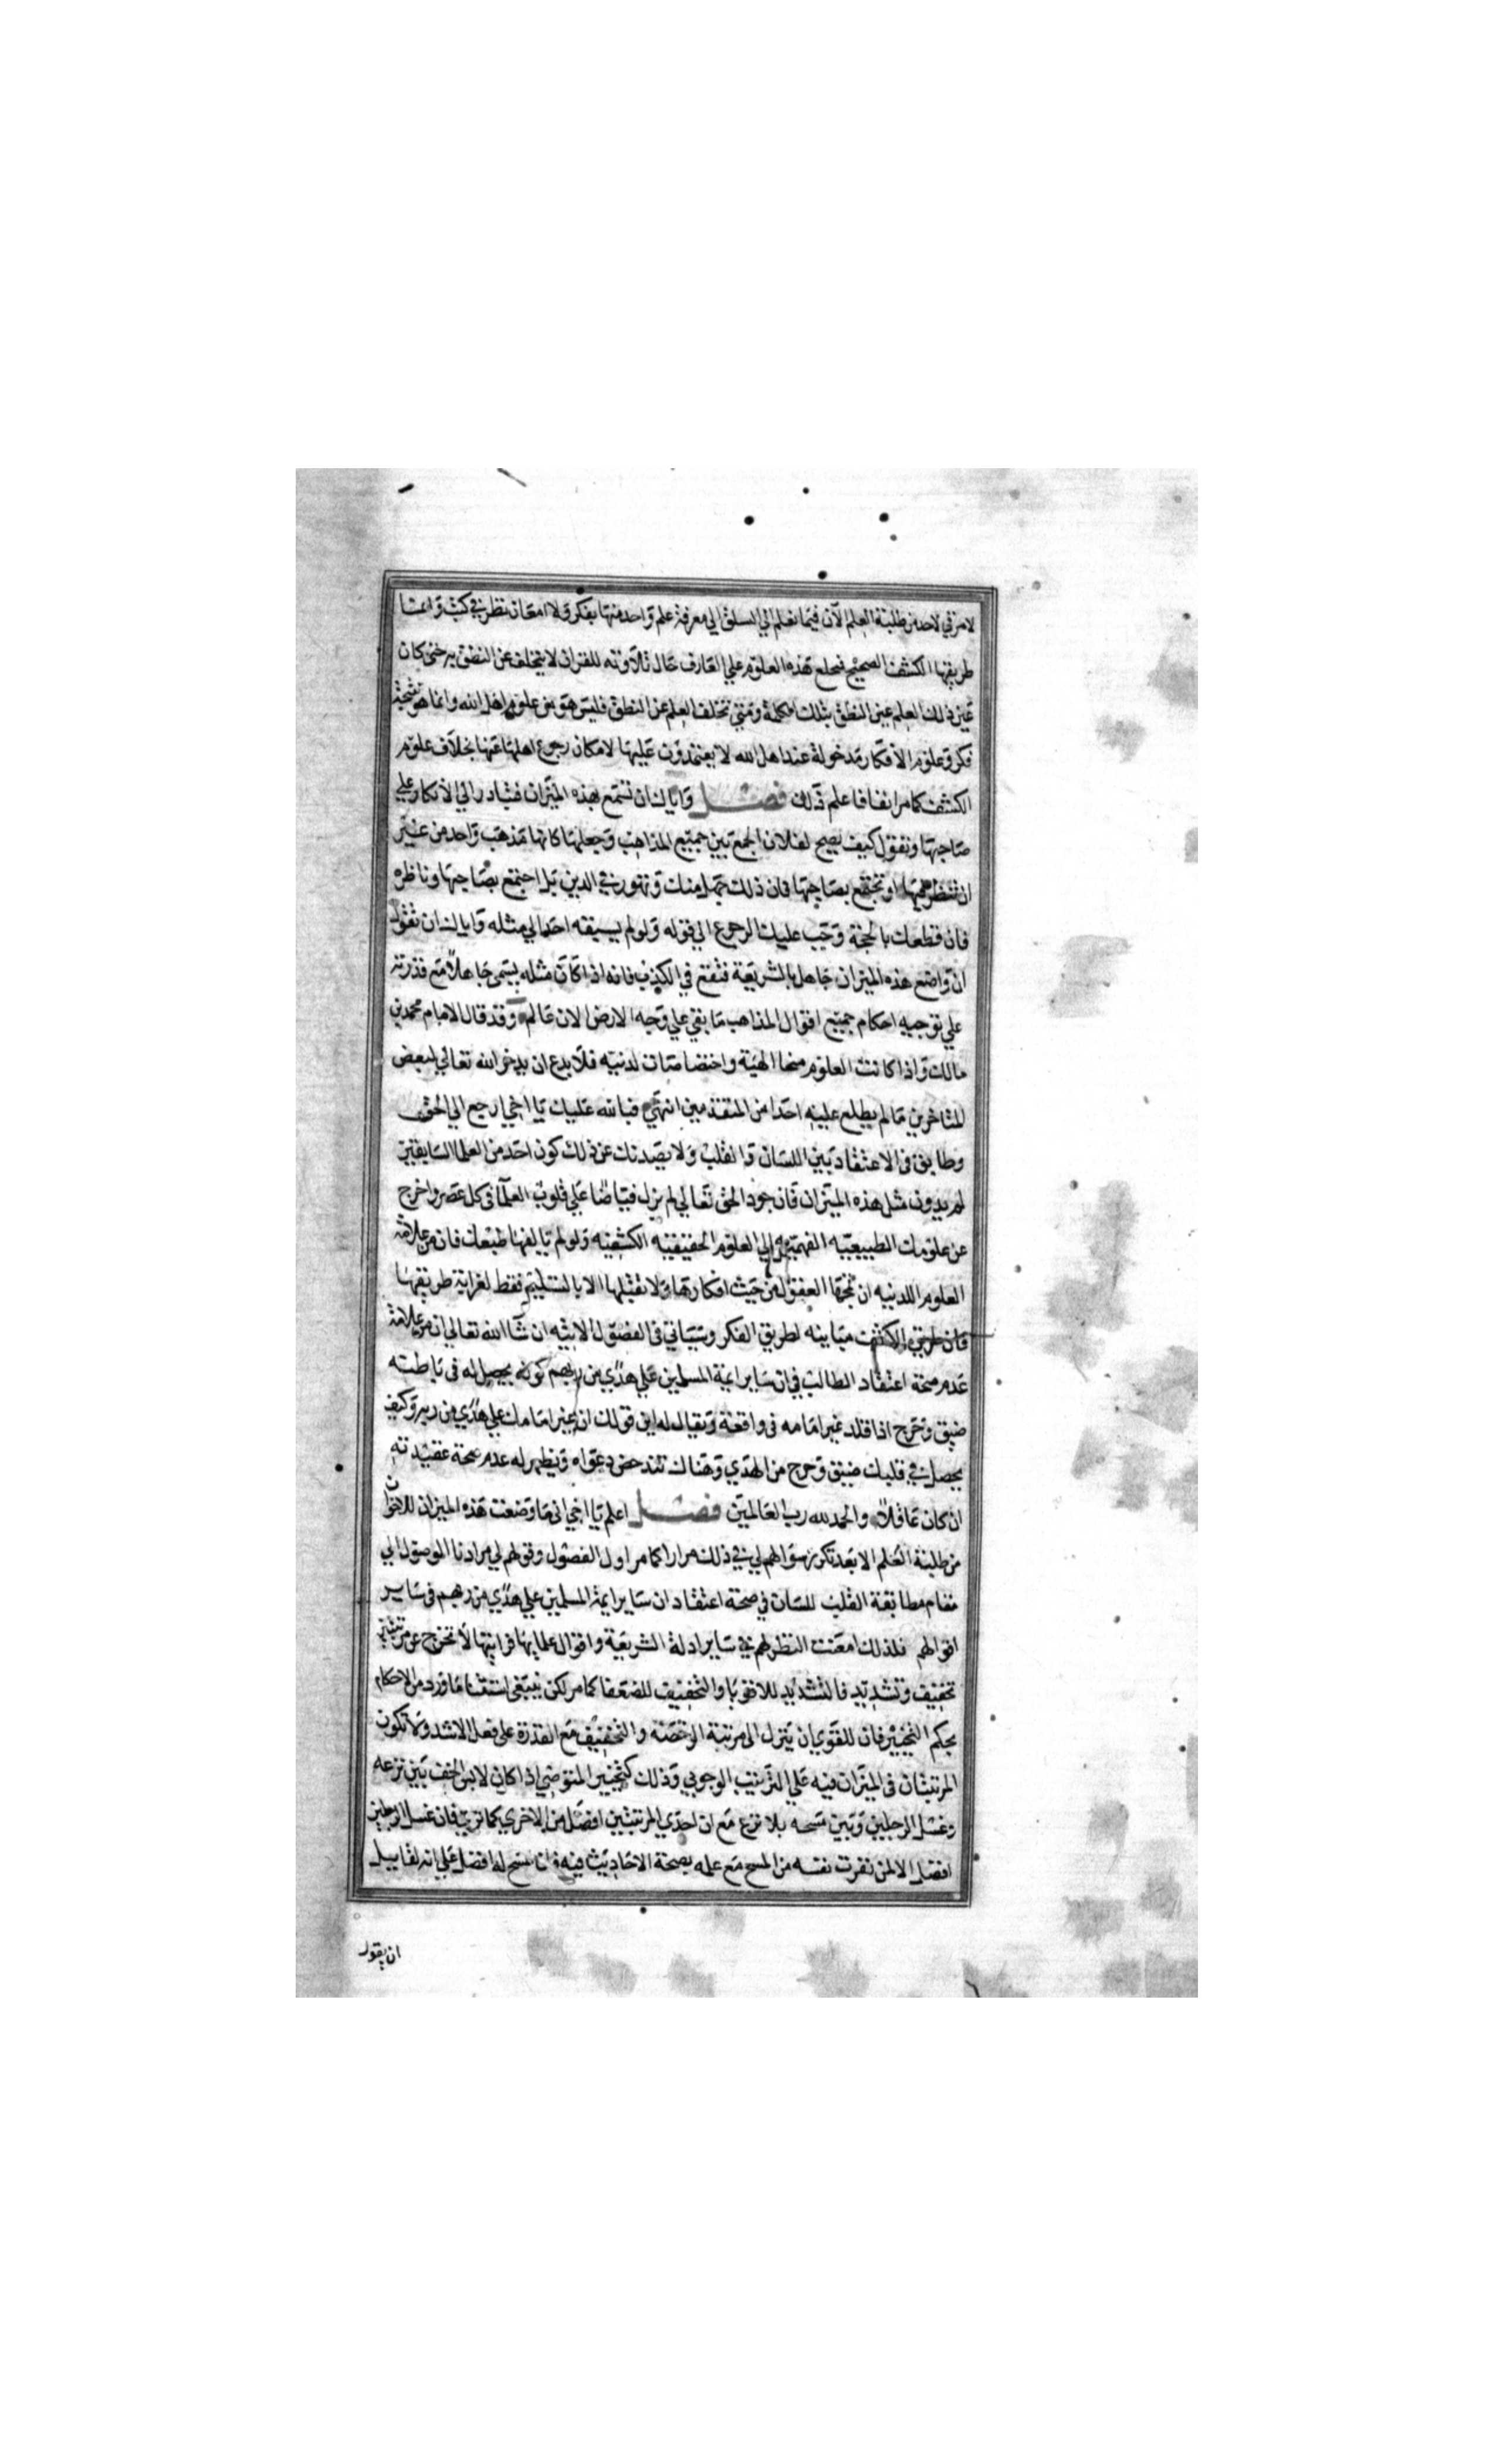 لامرقي لاحد من طلبة العلم الآن فيما نعلم الي السلق الي معرفة علم واحد منها بفكر ولا امعان نظر في كتب وانما
طريقها الكشف الصحيح فتخلع هذه العلوم علي العارف حال تلاوته للقران لا يتخلف عن النطق به حتى كان
عين ذلك العلم عين النطق بتلك الكلمة ومتي تخلف العلم عن النطق فليس هو من علوم اهل الله وانما هو نتيجة
فكر وعلوم الافكار مدخولة عند اهل الله لا يعتمدون عليها لامكان رجوع اهلها عنها بخلاف علوم
الكشف كما مر انفا فاعلم ذلك فصل واياك ان تسمع بهذه الميزان فتبادر الي الانكار علي
صاحبها وتقول كيف يصح لفلان الجمع بين جميع المذاهب وجعلها كانها مذهب واحد من غير
ان تنظر فيها او تجتمع بصاحبها فان ذلك جهل منك وتهور في الدين بل اجتمع بصاحبها وناظره
فان قطعك بالحجة وجب عليك الرجوع الي قوله ولو لم يسبقه احد الي مثله واياك ان تقول
ان واضع هذه الميزان جاهل بالشريعة فتقع في الكذب فانه اذا كان مثله يسمى جاهلا مع قدرته
علي توجيه احكام جميع اقوال المذاهب ما بقي علي وجه الارض الان عالم وقد قال الامام محمد بن
مالك واذا كانت العلوم منحا الهية واختصاصات لدنيه فلا بدع ان يدخر الله تعالي لبعض
المتاخرين ما لم يطلع عليه احدا من المتقدمين انتهي فبالله عليك يا اخي ارجع الي الحق
وطابق في الاعتقاد بين اللسان والقلب ولا يصدنك عن ذلك كون احد من العلما السابقين
لم يدون مثل هذه الميزان فان جود الحق تعالي لم يزل فياضا علي قلوب العلما في كل عصر واخرج
عن علومك الطبيعيه الفهميه الي العلوم الحقيقيه الكشفيه ولو لم يالفها طبعك فان من علامة
العلوم اللدنيه ان تمجها العقول من حيث افكارها ولا تقبلها الا بالتسليم فقط لغرابة طريقها
فان طريق الكشف مباينه لطريق الفكر وسياتي في الفصول الاتيه ان شا الله تعالي ان من علامة
عدم صحة اعتقاد الطالب في ان ساير ايمة المسلمين علي هدي من ربهم كونه يحصل له في باطنه
ضيق وحرج اذا قلد غير امامه في واقعة ويقال له اين قولك ان غير امامك علي هدي من ربه وكيف
يحصل في قلبك ضيق وحرج من الهدي وهناك تندحض دعواه ويظهر له عدم صحة عقيدته
ان كان عاقلا والحمد لله رب العالمين فصل اعلم يا اخي اني ما وضعت هذه الميزان للاخوان
من طلبة العلم الا بعد تكرر سؤالهم لي في ذلك مرارا كما مر اول الفصول وقولهم لي مرادنا الوصول الي
مقام مطابقة القلب للسان في صحة اعتقاد ان ساير ايمة المسلمين علي هدي من ربهم في ساير
اقوالهم فلذلك امعنت النظر لهم في ساير ادلة الشريعة واقوال علمايها فرايتها لا تخرج عن مرتبتين
تخفيف وتشديد فالتشديد للاقويا والتخفيف للضعفا كما مر لكن ينبغي استثنا ما ورد من الاحكام
بحكم التخيير فان للقوي ان ينزل الى مرتبة الرخصه والتخفيف مع القدرة على فعل الاشد ولا تكون
المرتبتان في الميزان فيه علي الترتيب الوجوبي وذلك كتخيير المتوضي اذا كان لابس الخف بين نزعه
وغسل الرجلين وبين مسحه بلا نزع مع ان احدي المرتبتين افضل من الاخري كما تري فان غسل الرجلين
افضل الا لمن نفرت نفسه من المسح مع علمه بصحة الاحاديث فيه فان المسح له افضل علي انه لقايل
ان يقول